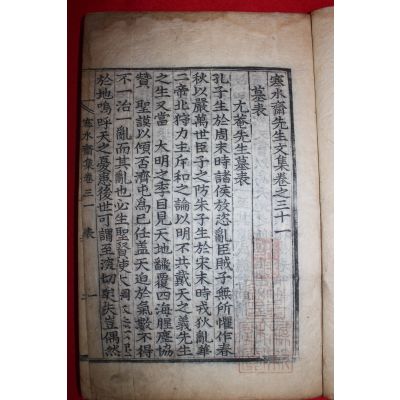 寒水齋先生文集卷之三十一
墓表
尤菴先生墓表
孔子生於周末時諸侯放恣亂臣賊子無所懼作春
秋以嚴萬世臣子之防朱子生於宋末時戎狄亂華
二帝北狩力主斥和之論以明不共戴天之義先生
之生又當 大明之季目見天地飜覆四海腥塵協
贊 聖謨以傾否濟屯爲已任盖天迫於氣數不得
不一治一亂而其亂也必生聖賢使大綱
於地嗚呼天之憂患後世可謂至深切矣夫豈偶然
寒水齋集卷三一 表 一